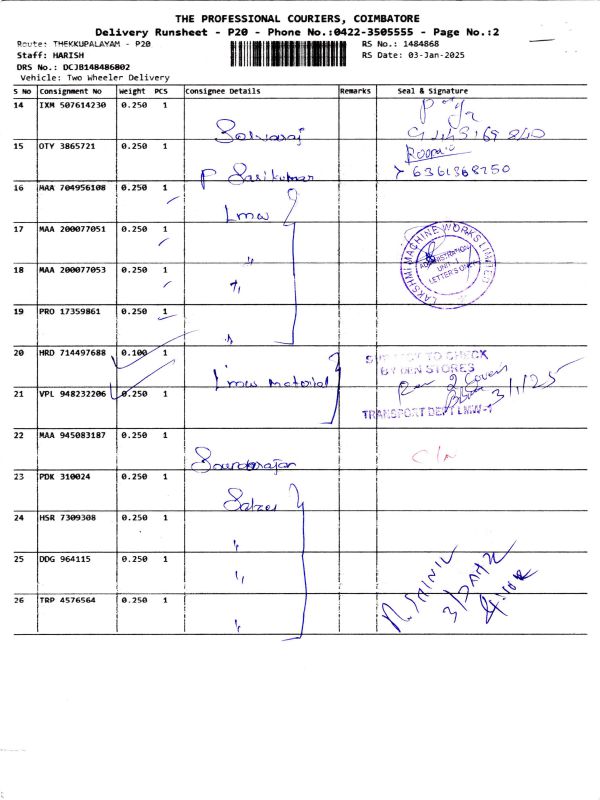 THE PROFESSIONAL COURIERS, COIMBATORE
Delivery Runsheet - P20 - Phone No.:0422-3505555 - Page No.:2
Route: THEKKUPALAYAM - P20
RS No.: 1484868
Staff: HARISH
RS Date: 03-Jan-2025
DRS No.: DCJB148486802
Vehicle: Two Wheeler Delivery
S No Consignment No Weight PCS Consignee Details Remarks Seal & Signature
14 IXM 507614230 0.250 1
15 OTY 3865721 0.250 1
P Sasikumar 6361368250
16 MAA 704956108 0.250 1
Lmw
17 MAA 200077051 0.250 1
LAKSHMI MACHINE WORKS LIMITED
ADMINISTRATION
UNIT-1
LETTER'S ONLY
18 MAA 200077053 0.250 1
19 PRO 17359861 0.250 1
20 HRD 714497688 0.100 1
SUBJECT TO CHECK
BY OEN STORES
Lmw material
2 Covers
3/1/25
21 VPL 948232206 0.250 1
TRANSPORT DEPT LMW-1
22 MAA 945083187 0.250 1
Soundarajan
23 PDK 310024 0.250 1
24 HSR 7309308 0.250 1
25 DDG 964115 0.250 1
26 TRP 4576564 0.250 1